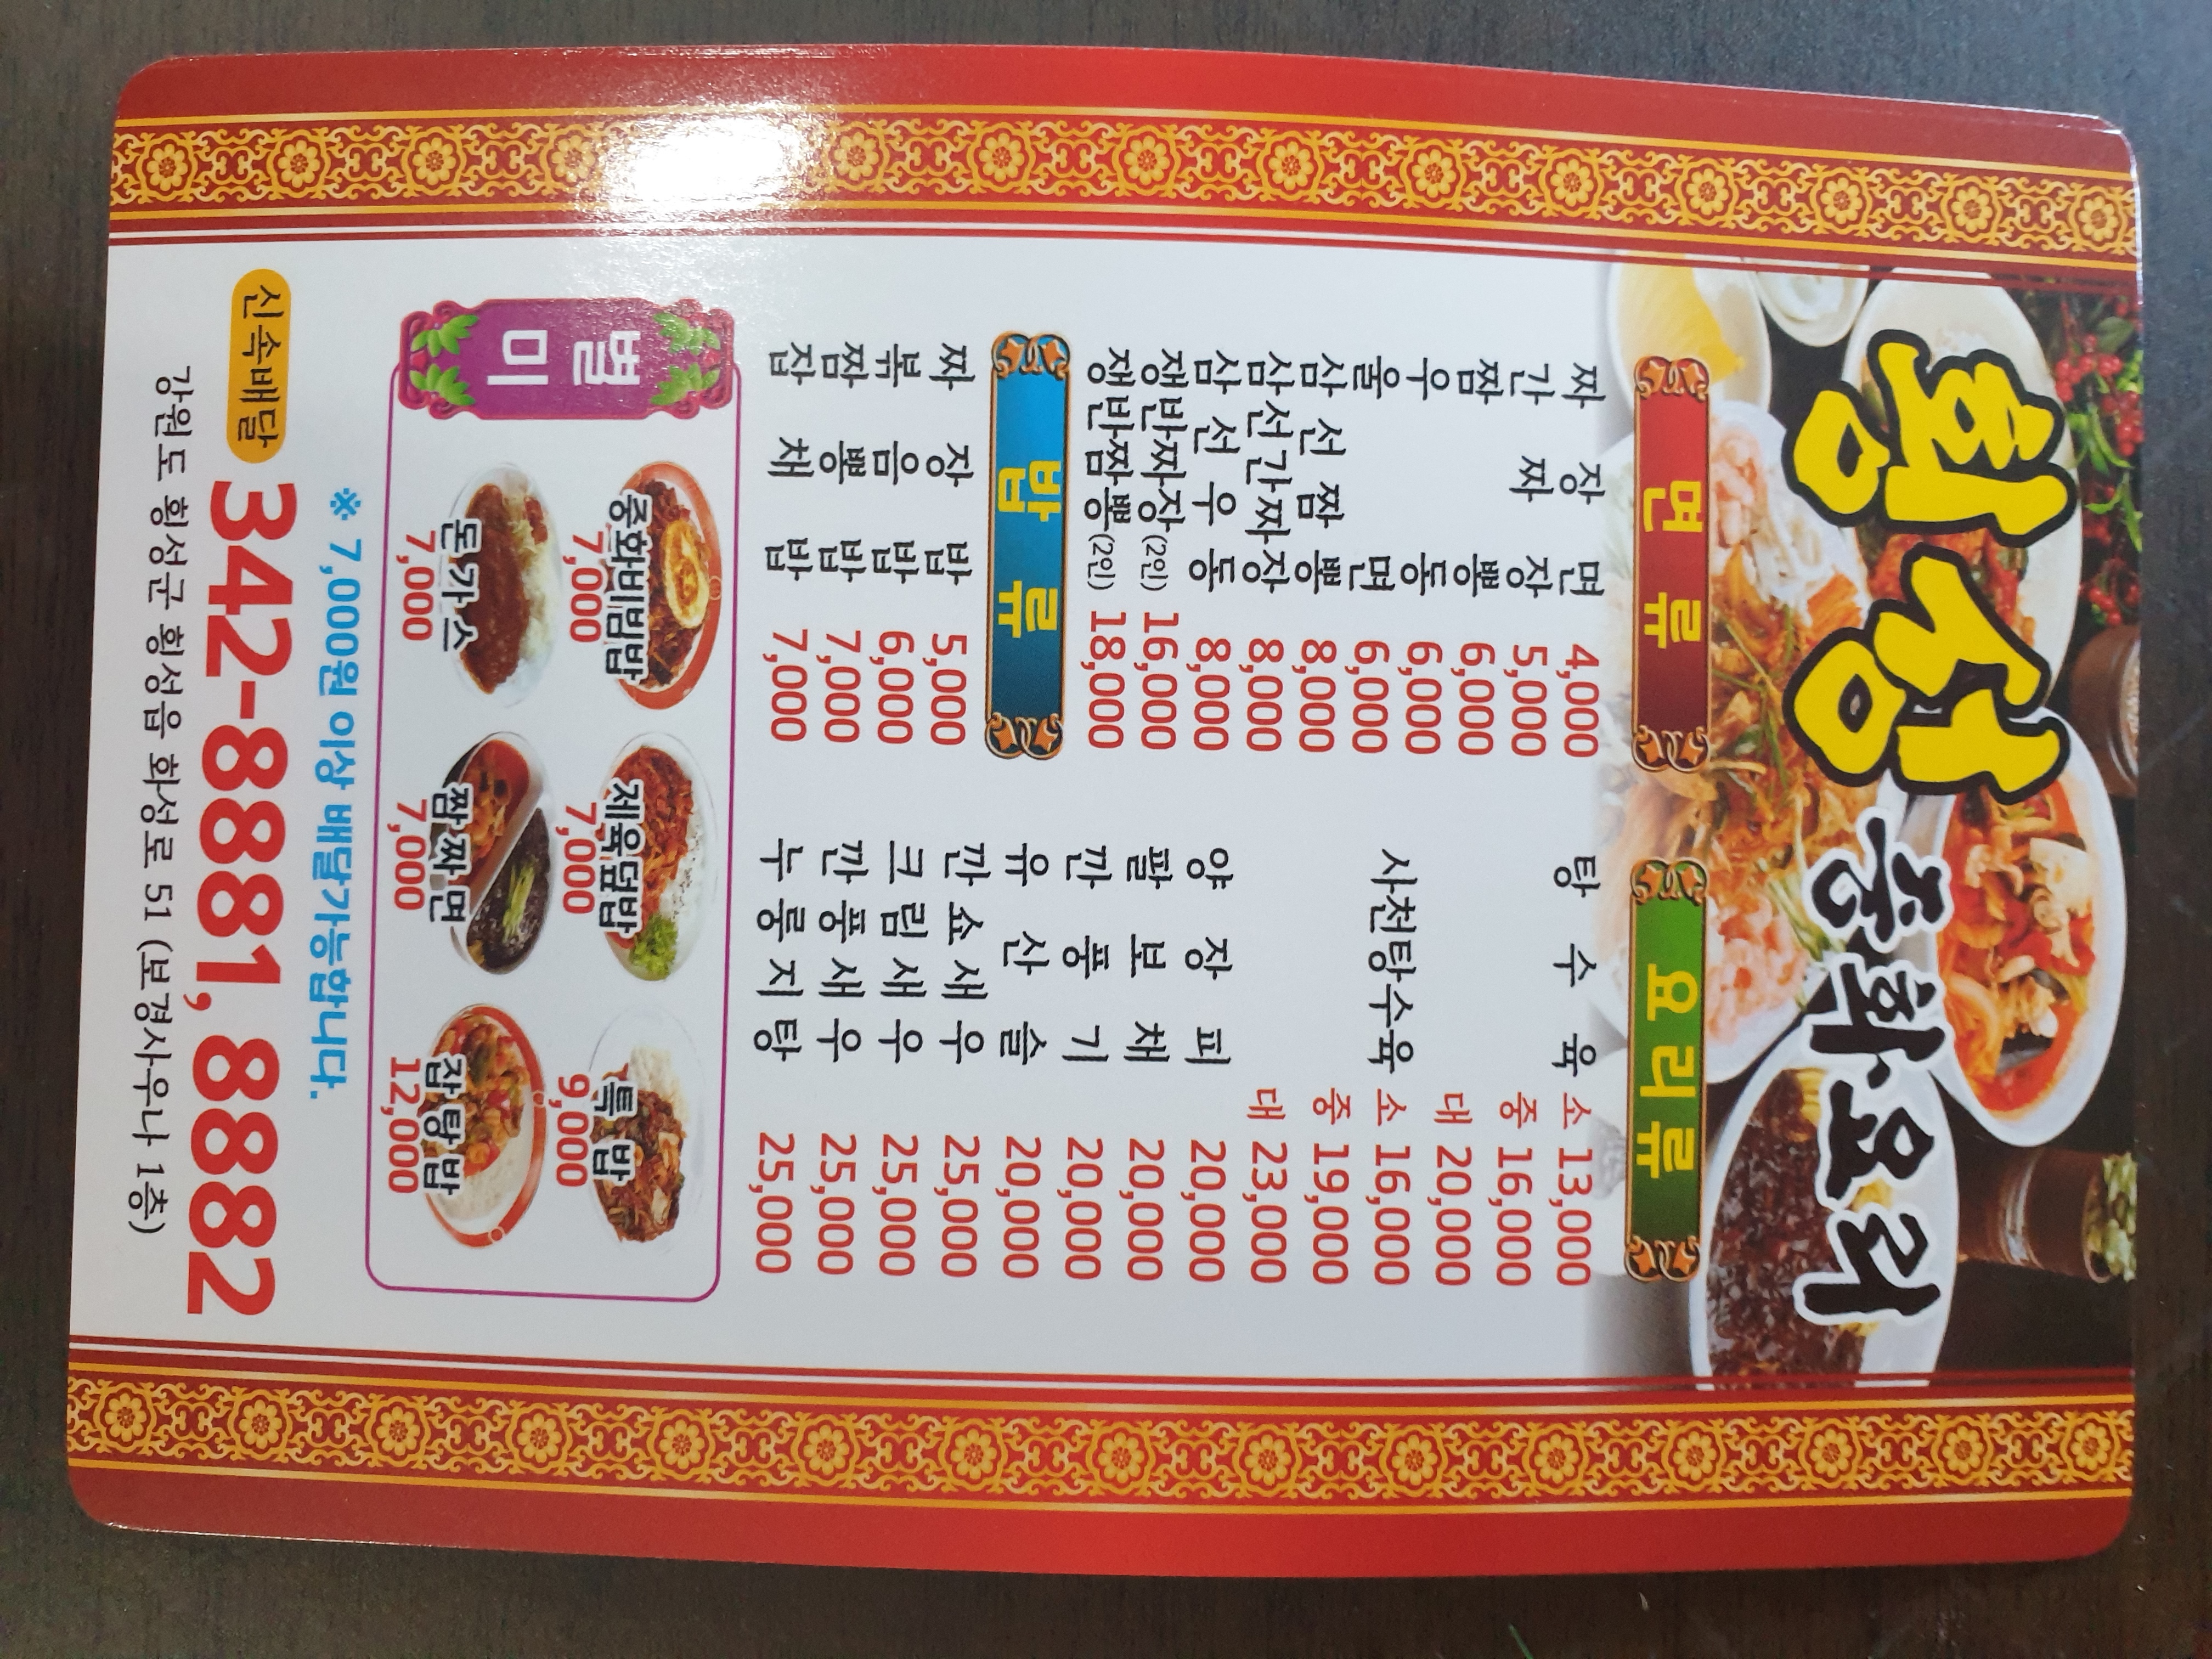 횡성 중화요리
면류
짜장면 4,000
간짜장 5,000
짬뽕 6,000
우동 6,000
울면 6,000
삼선짬뽕 8,000
삼선간짜장 8,000
삼선우동 8,000
쟁반짜장(2인) 16,000
쟁반짬뽕(2인) 18,000
밥류
짜장밥 5,000
볶음밥 6,000
짬뽕밥 7,000
잡채밥 7,000
요리류
탕수육 소 13,000
중 16,000
대 20,000
사천탕수육 소 16,000
중 19,000
대 23,000
양장피 20,000
팔보채 20,000
깐풍기 20,000
유산슬 20,000
깐쇼새우 25,000
크림새우 25,000
깐풍새우 25,000
누룽지탕 25,000
별미
중화비빔밥 7,000
제육덮밥 7,000
특밥 9,000
돈가스 7,000
짬짜면 7,000
잡탕밥 12,000
※ 7,000원 이상 배달가능합니다.
신속배달 342-8881, 8882
강원도 횡성군 횡성읍 화성로 51 (보경사우나 1층)